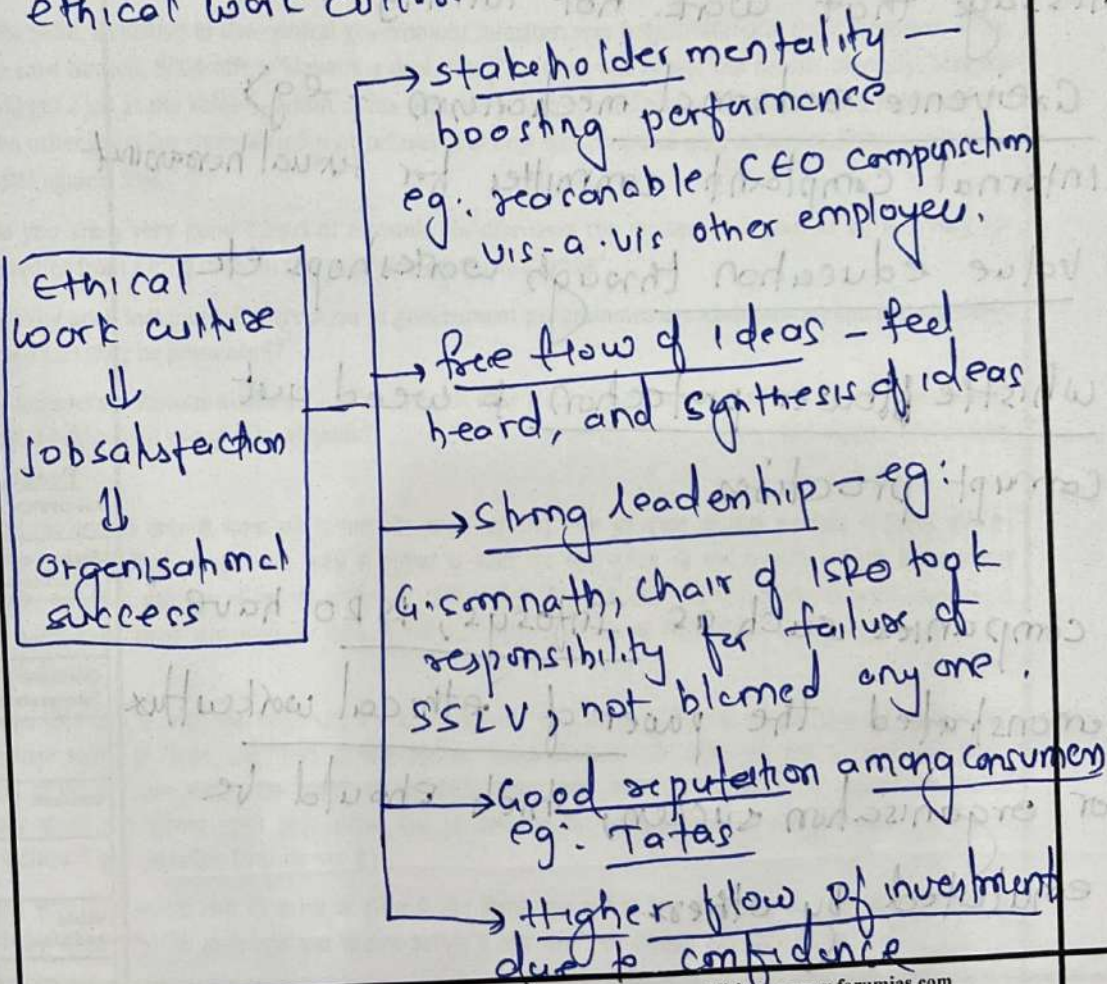 ethical work
Ethical
work culture
⇓
Jobsatisfaction
⇓
organisational
success
→ stakeholder mentality —
boosting performance
eg: reasonable CEO compensation
vis-a-vis other employees.
→ free flow of ideas - feel
heard, and synthesis of ideas
→ strong leadership - eg:
G. somnath, chair of ISRO took
responsibility for failure of
SSLV, not blamed any one.
→ Good reputation among consumers
eg: Tatas
→ Higher flow of investment
due to confidence